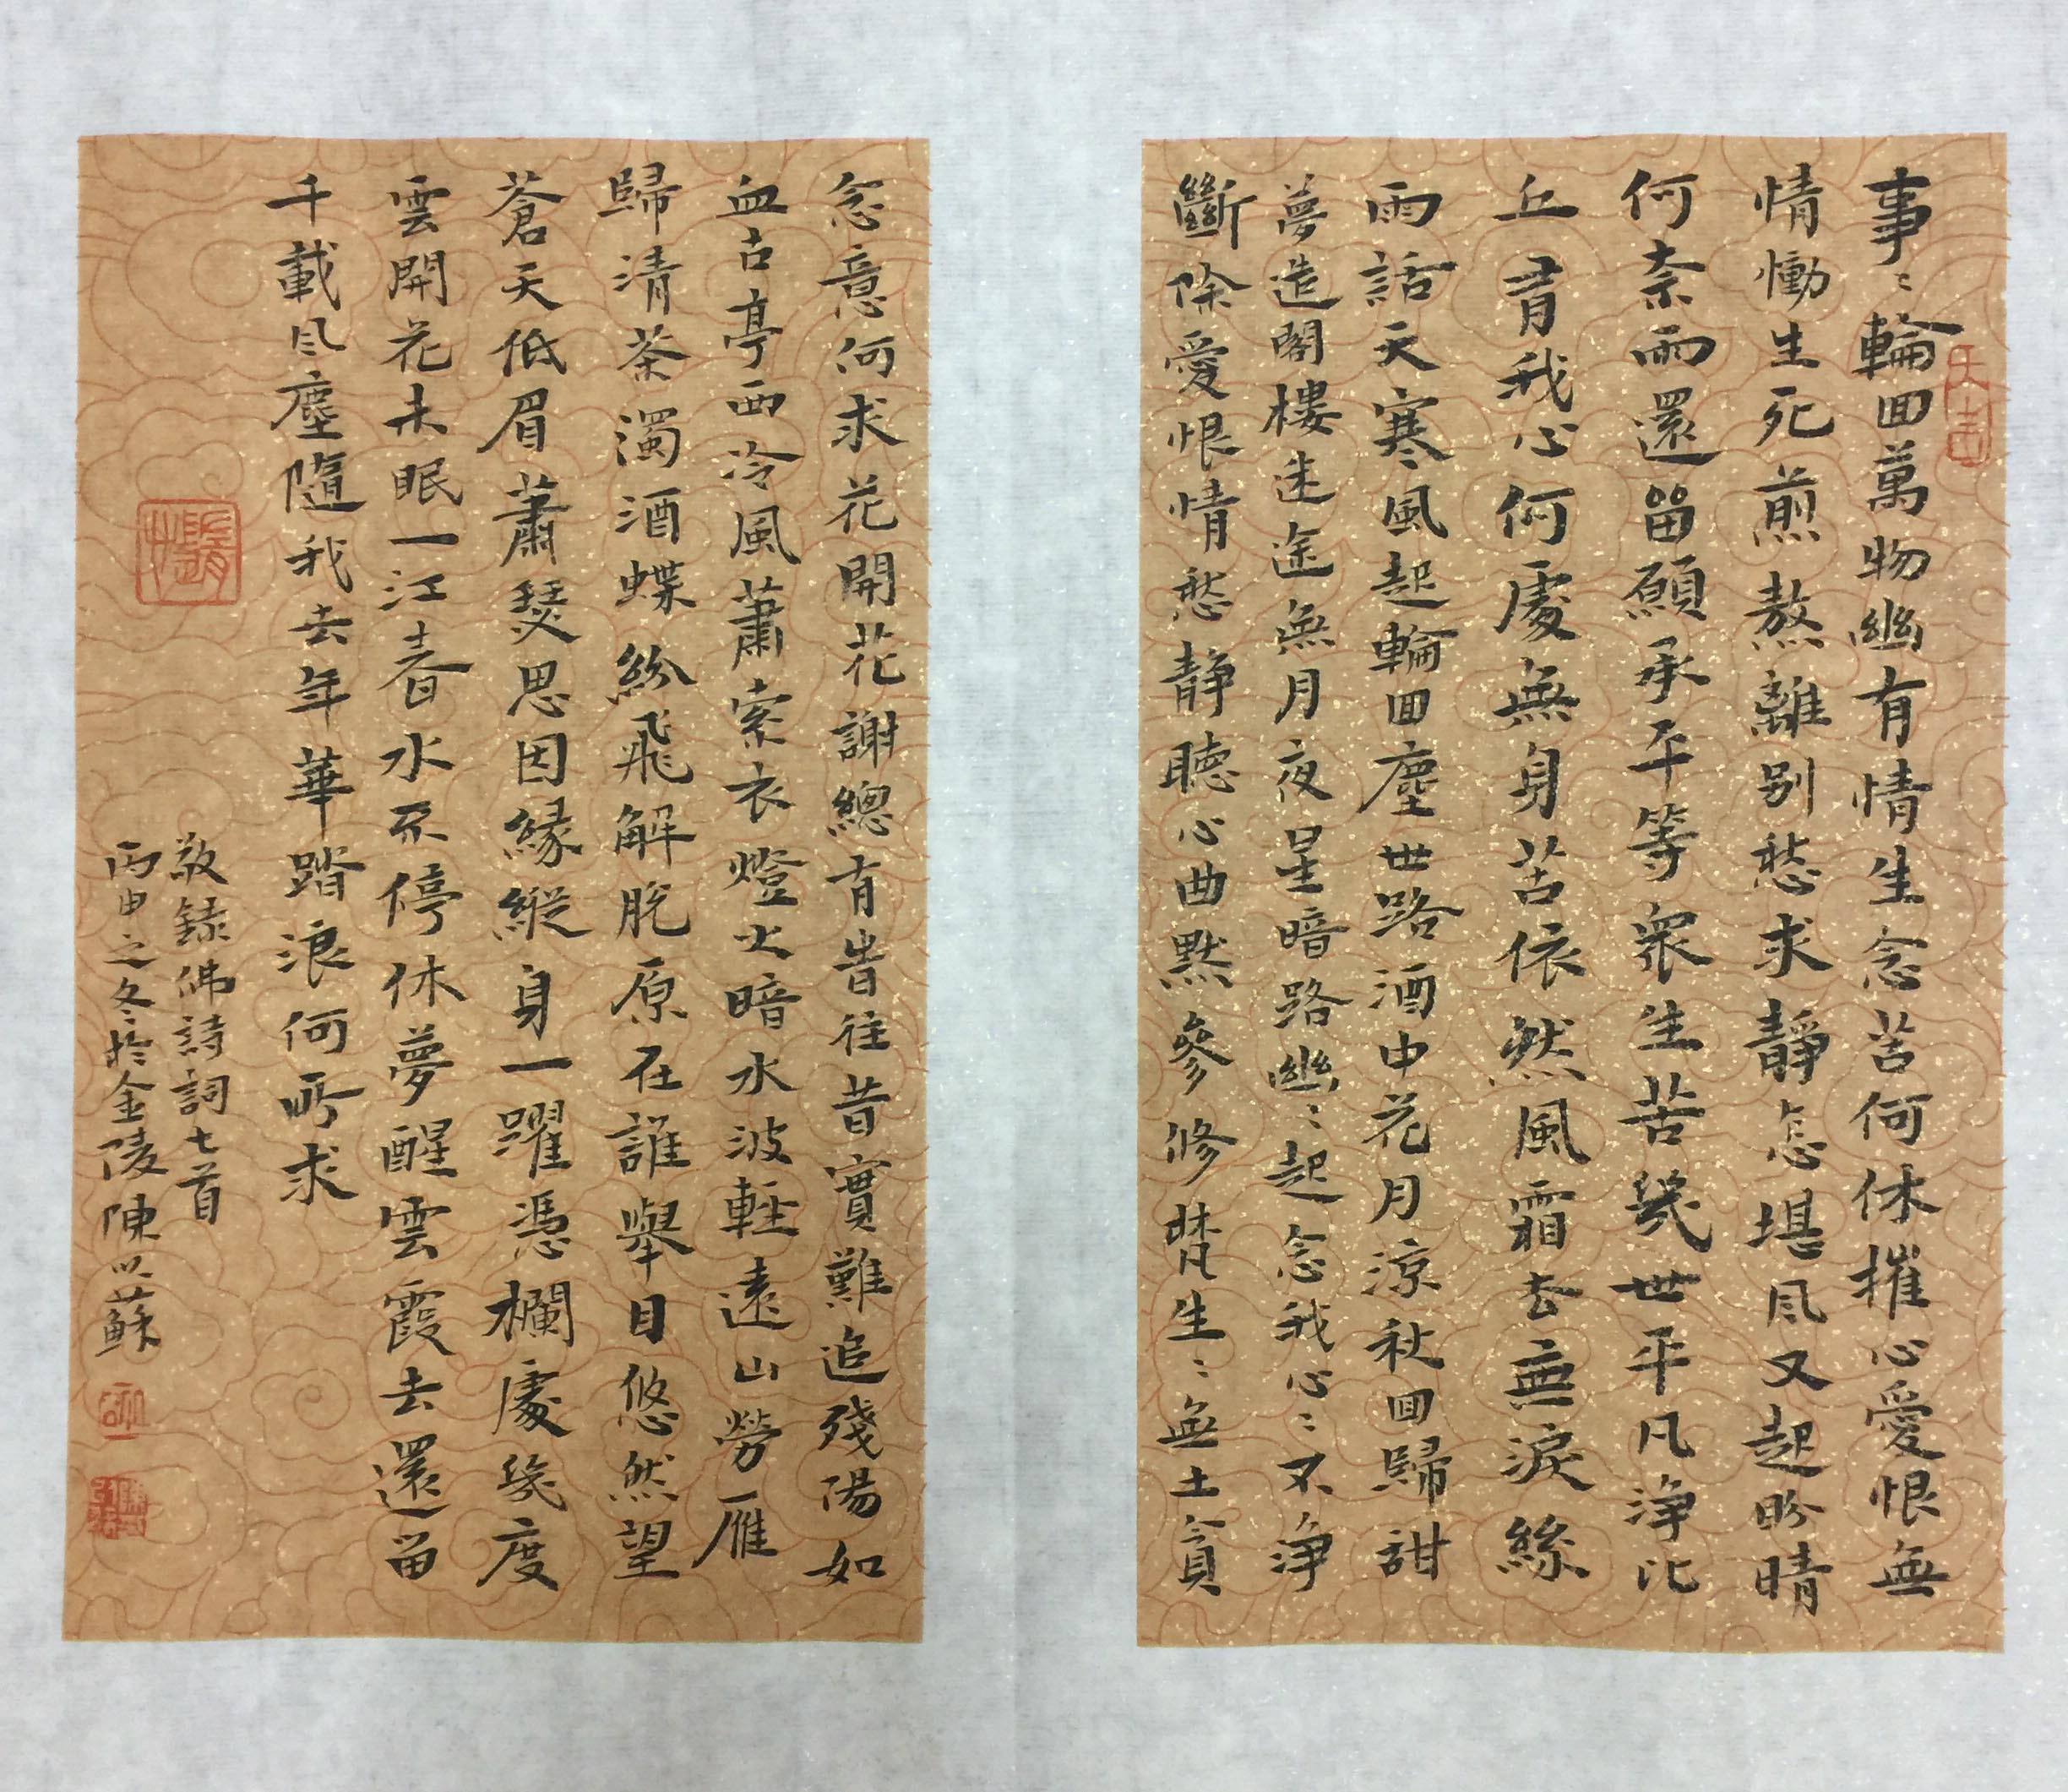 事〻輪回萬物幽有情生念苦何休摧心愛恨無
情慟生死煎熬離別愁求靜怎堪風又起盼晴
何奈雨還留願承平等衆生苦幾世平凡淨比
丘君我心何處無身苦依然風霜去無淚絲
雨話天寒風起輪回塵世路酒中花月涼秋回歸甜
夢造閣樓迷途無月夜星暗路幽〻起念我心〻不淨
斷除愛恨情愁靜聽心曲默參修梵生〻無土貪
念意何求花開花謝總有昔往昔實難追殘陽如
血古亭西冷風蕭索衣燈火暗水波輕遠山勞雁
歸清茶濁酒蝶紛飛解脫原在誰舉目悠然望
蒼天低眉蕭瑟思因緣縱身一躍憑欄處幾度
雲開花未眠一江春水不停休夢醒雲霞去還留
千載風塵隨我去年華踏浪何所求
敬錄佛詩詞七首
丙申之冬於金陵陳以蘇